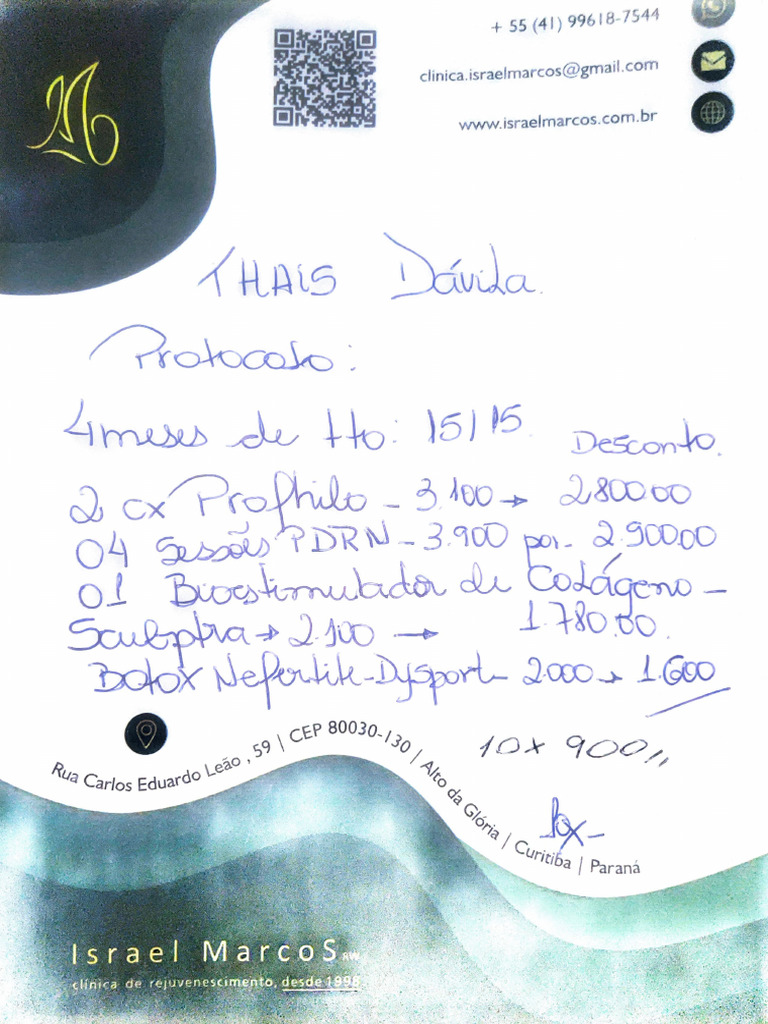 + 55 (41) 99618-7544
clinica.israelmarcos@gmail.com
www.israelmarcos.com.br
THAIS Dávila.
Protocolo:
4 meses de tto: 15/15.
Desconto.
2 cx Profhilo - 3.100 → 2.800.00
04 Sessões PDRN - 3.900 por - 2.900.00
01 Bioestimulador de Colágeno -
Sculptra → 2.100 → 1.780.00.
Botox Nefertite - Dysport - 2.000 → 1.600
10x 900!!
Rua Carlos Eduardo Leão , 59 | CEP 80030-130 | Alto da Glória | Curitiba | Paraná
Israel MarcoS
clínica de rejuvenescimento, desde 1998